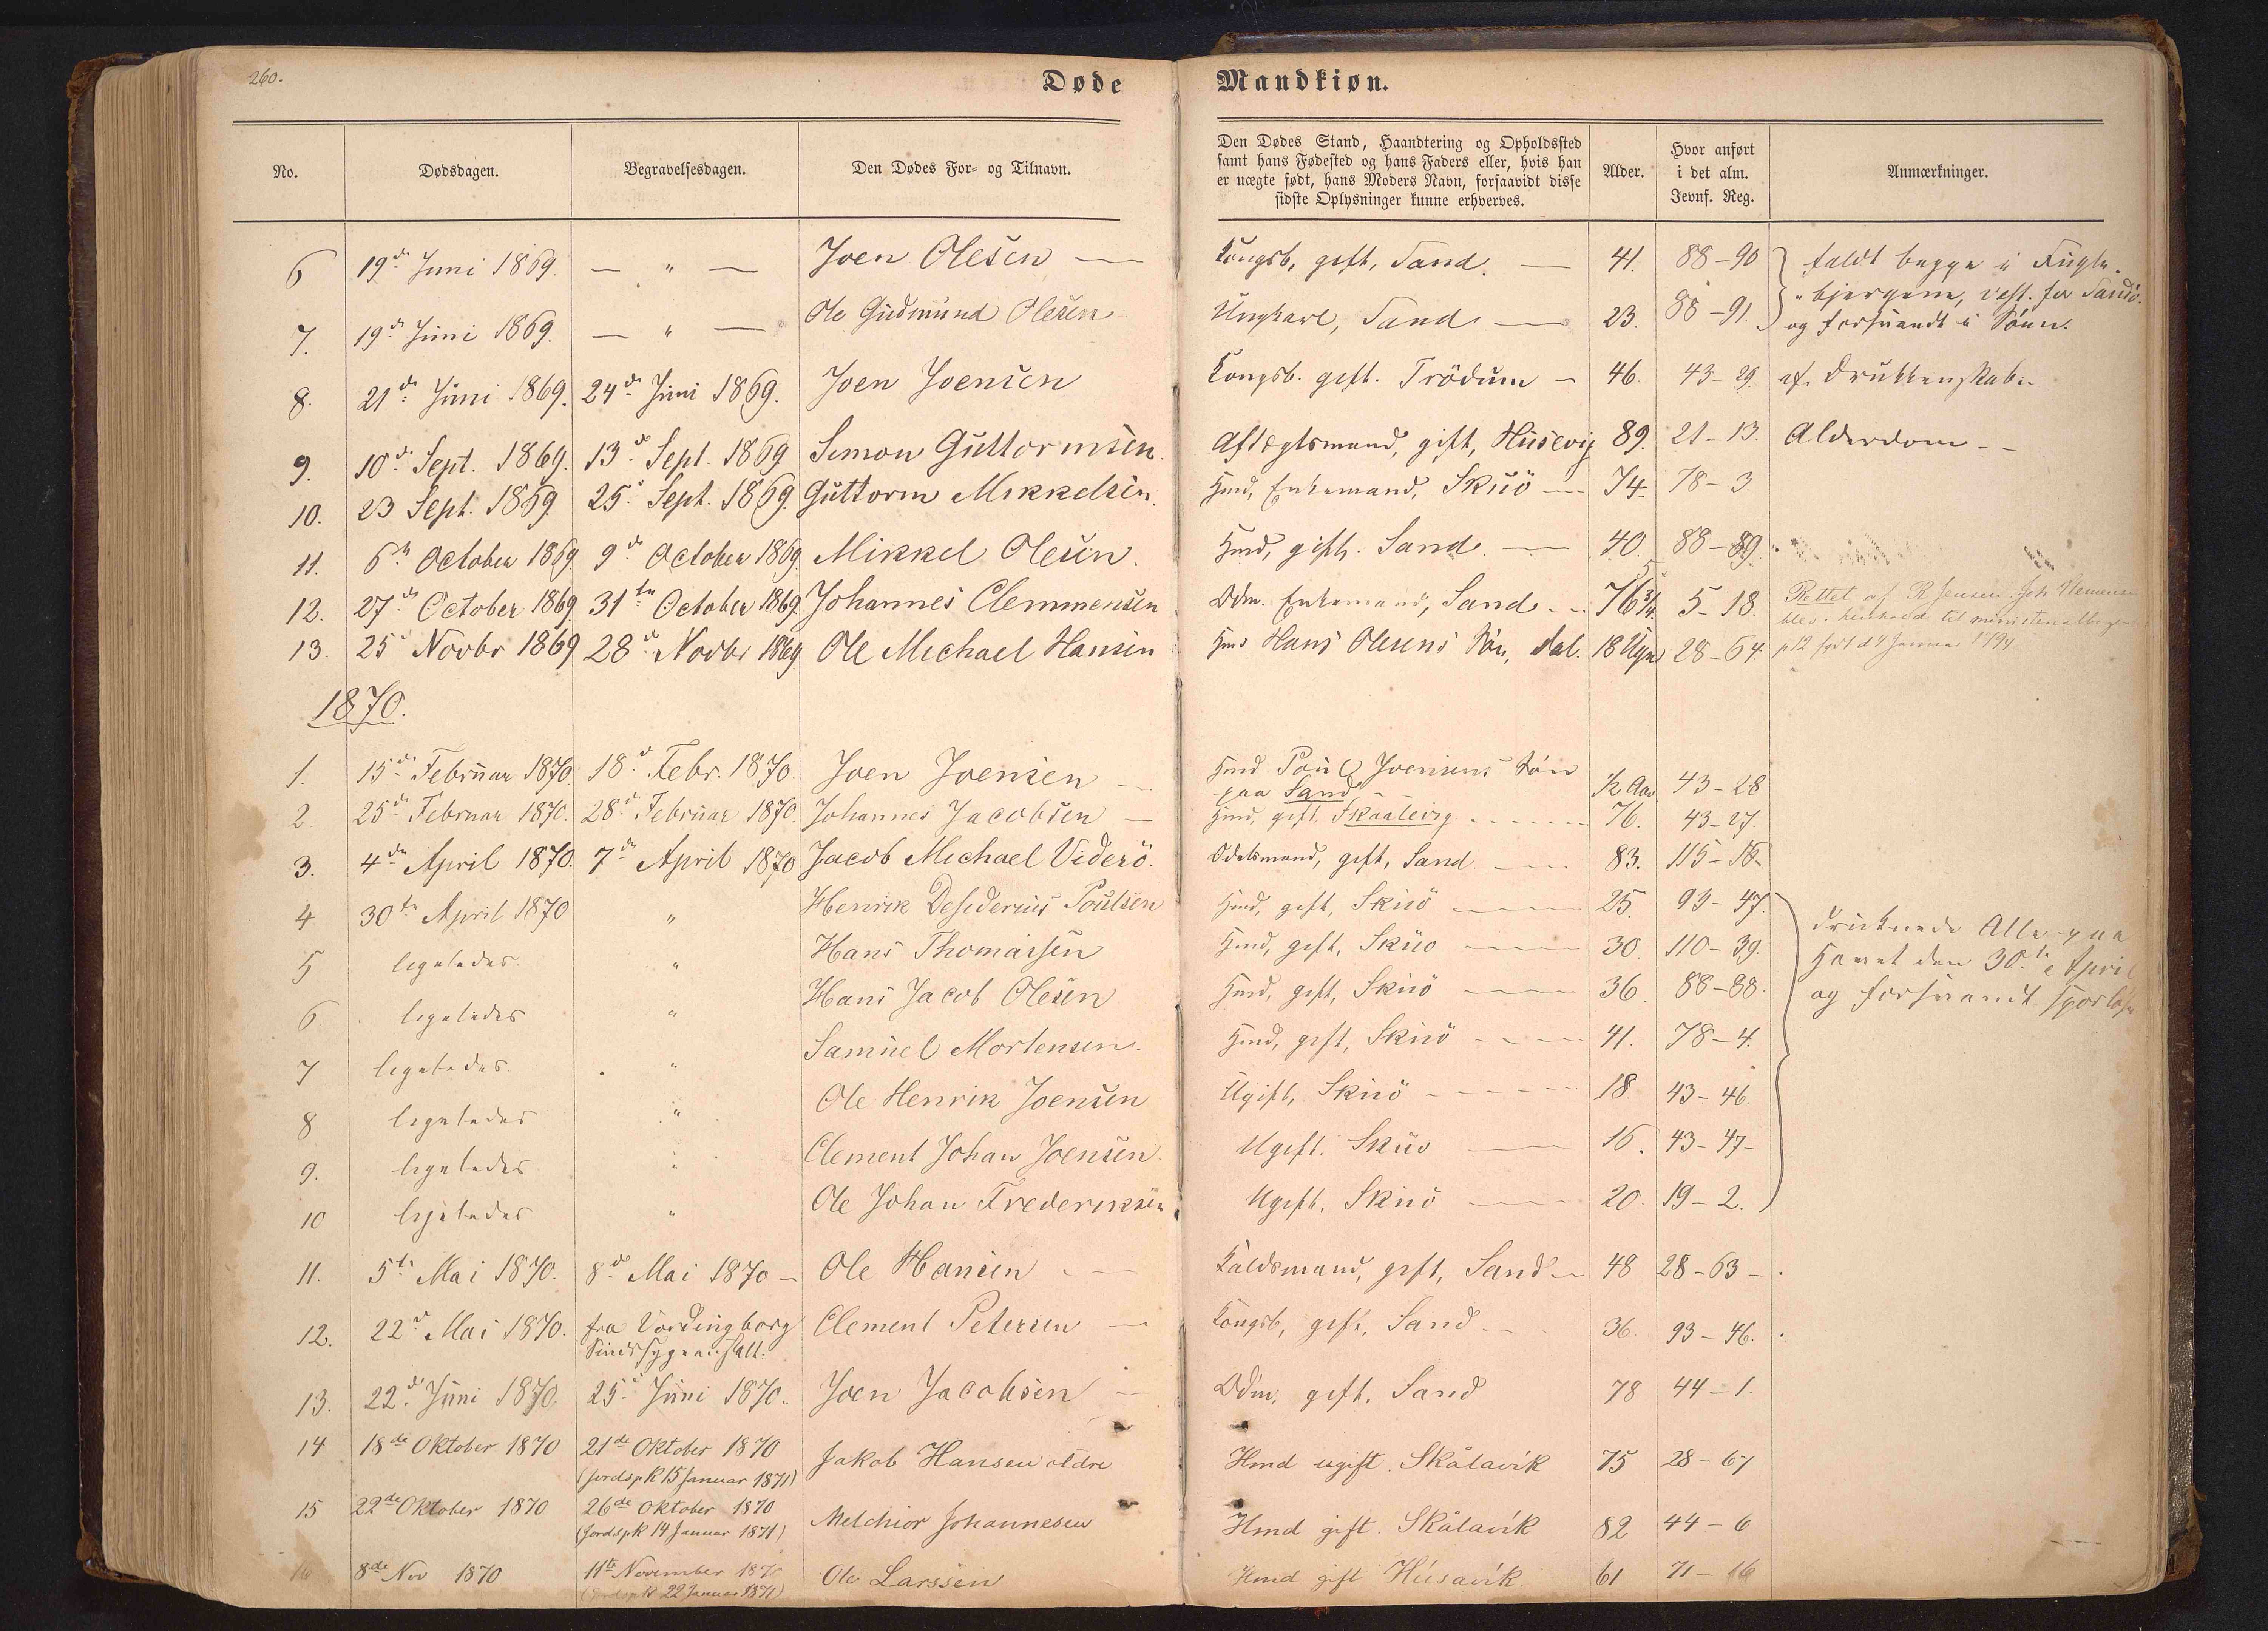 260.
Døde Mandkiøn.
No. Dødsdagen. Begravelsesdagen. Den Dødes For- og Tilnavn. Den Dødes Stand, Haandtering og Opholdssted samt hans Fødested og hans Faders eller, hvis han er uægte født, hans Moders Navn, forsaavidt disse sidste Oplysninger kunne erhverves. Alder. Hvor anført i det alm. Jevnf. Reg. Anmærkninger.
6 19de Juni 1869. — " — Joen Olesen — Kongsb, gift, Sand. — 41. 88-90 faldt begge i Fugle-
7. 19de Juni 1869. — " — Ole Gudmund Olesen Ungkarl, Sand — 23. 88-91. bjergene, vest. for Sandö.
og forsvandt i Söen.
8. 21de Juni 1869. 24de Juni 1869. Joen Joensen Kongsb. gift. Trödum - 46. 43-29. af Drukkenskab.
9. 10de Sept. 1869. 13de Sept. 1869 Simon Guttormsen. Aftægtsmand, gift, Husevig 89. 21-13. Alderdom -
10. 23 Sept. 1869 25 Sept. 1869. Guttorm Mikkelsen. Hmd, Enkemand, Skuö — 74. 78-3
11. 6te October 1869 9de October 1869. Mikkel Olesen. Hmd, gift. Sand. — 40. 88-89.
12. 27de October 1869. 31te October 1869. Johannes Clemmensen Odm. Enkemand, Sand. 76 3/4. 5-18. Rettet af R Jensen. Joh Clemensen
blev i henhold til ministerialbogen
13. 25 Novbr 1869 28de Novbr 1869 Ole Michael Hansen Hmd Hans Olesens Sön, Dal. 18 Uger 28-64 p 12 født d 4 Januar 1794
1870.
1. 15de Februar 1870 18de Febr. 1870. Joen Joensen — Hmd Poul Joensens Sön
paa Sand - 1/2 Aar 43-28
2. 25de Februar 1870. 28de Februar 1870 Johannes Jacobsen — Hmd, gift, Skaalevig 76. 43-27.
3. 4de April 1870. 7de April 1870 Jacob Michael Viderö. Odelsmand, gift, Sand. 83. 115-18-
4 30te April 1870 " Henrik Desederius Poulsen Hmd, gift, Skuö — 25. 93-47.
5 ligeledes " Hans Thomassen Hmd, gift, Skuö — 30. 110-39. druknede Alle paa
6 ligeledes " Hans Jacob Olesen Hmd, gift, Skuö — 36. 88-88. Havet den 30te April
og forsvandt sporløst
7 ligeledes " Samuel Mortensen. Hmd, gift, Skuö - 41. 78-4.
8 ligeledes " Ole Henrik Joensen Ugift, Skuö - 18. 43-46.
9. ligeledes " Clement Johan Joensen. Ugift. Skuö — 16. 43-47-
10 ligeledes " Ole Johan Frederiksen Ugift, Skuö — 20. 19-2.
11. 5te Mai 1870. 8de Mai 1870 - Ole Hansen - Kaldsmand, gift, Sand - 48 28-63-.
12. 22de Mai 1870. fra Vordingborg Clement Petersen — Kongsb, gift, Sand - 36. 93-46.
Sindssygeanstalt.
13. 22de Juni 1870. 25de Juni 1870. Joen Jacobsen — Odm, gift, Sand 78 44-1.
14 18de Oktober 1870 21de Oktober 1870 Jakob Hansen ældre Hmd ugift. Skålavik 75 28-67
(Jordspk 15 Januar 1871)
15 22de Oktober 1870 26de Oktober 1870 Melchior Johannesen Hmd gift. Skålavík 82 44-6
(Jordspk 14 Januar 1871)
16 8de Nov 1870 11te November 1870 Ole Larssen Hmd gift Húsavík 61 71-16
(Jordspk 22 Januar 1871)